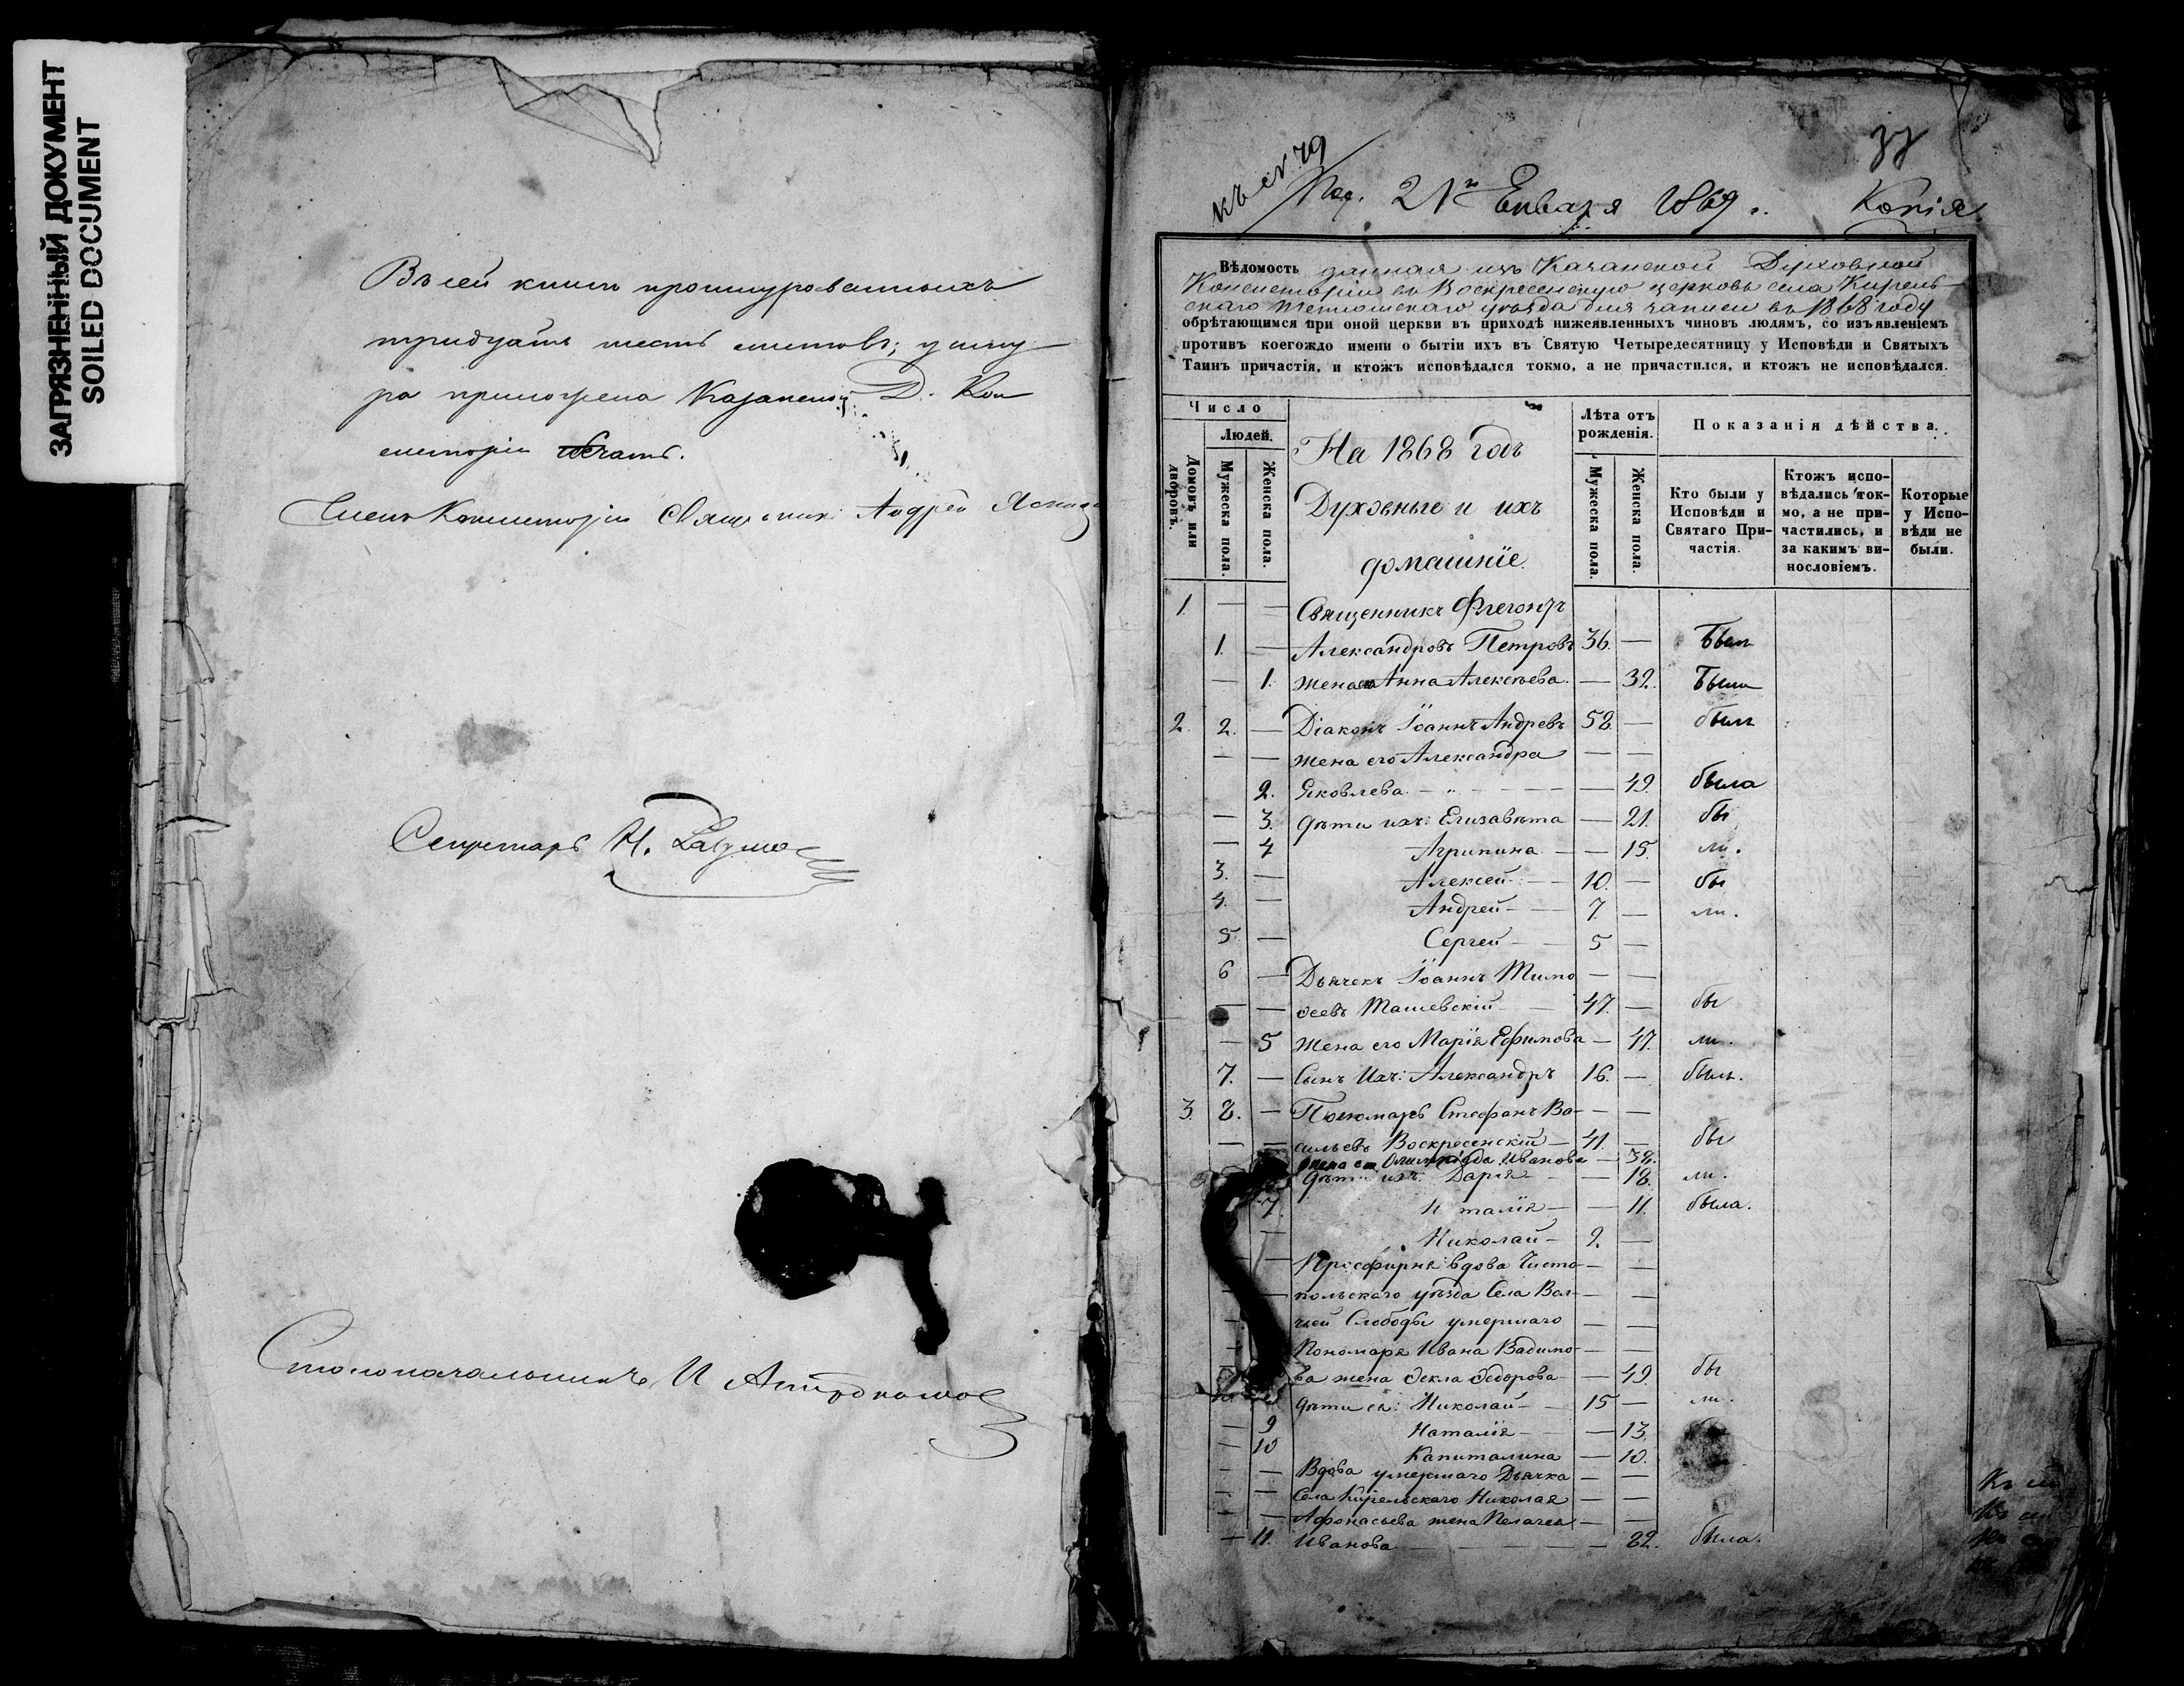 ЗАГРЯЗНЕННЫЙ ДОКУМЕНТ
SOILED DOCUMENT
Въ сей книгѣ прошнурованныхъ
тридцать шесть листовъ; у шну
ра приложена Казанской Д. Кон
систоріи печать.
Членъ Консисторіи Священникъ Андрей
Секретарь И.
Столоначальникъ И
37
къ ст. 79
Пол. 21го Января 1869 г. Копія.
Вѣдомость данная изъ Казанской Духовной
Консисторіи въ Воскресенскую церковь села Кирель-
скаго Тетюшскаго уѣзда для записи въ 1868 году
обрѣтающимся при оной церкви въ приходѣ нижеявленныхъ чиновъ людямъ, со изъявленіемъ
противъ коегождо имени о бытіи ихъ въ Святую Четыредесятницу у Исповѣди и Святыхъ
Таинъ причастія, и ктожъ исповѣдался токмо, а не причастился, и ктожъ не исповѣдался.
Число
Домовъ или дворовъ.
Людей.
Мужеска пола.
Женска пола.
На 1868 годъ
Духовные и ихъ
домашніе.
Лѣта отъ рожденія.
Мужеска пола.
Женска пола.
Показанія дѣйства.
Кто были у Исповѣди и Святаго При-частія.
Ктожъ испо-вѣдались ток-мо, а не при-частились, и за какимъ ви-нословіемъ.
Которые у Испо-вѣди не были.
1. — — Священникъ Флегонтъ
1. — Александровъ Петровъ 36. — Былъ
— 1. жена его Анна Алексѣева. — 32. Была
2. 2. — Діаконъ Іоаннъ Андревъ 58. — былъ
— — жена его Александра — —
2. Яковлева — — 49. была
— 3. дѣти ихъ: Елизавѣта — 21. бы
— 4 Агрипина — — 15. ли.
3. — Алексей — 10. — бы
4. — Андрей — 7. — ли.
5. — Сергей — 5 —
6 — Дьячекъ Іоаннъ Тимо — —
— — ѳеевъ Ташевскій — 47. — бы
— 5 жена его Марія Ефимова — 47. ли.
7. — Сынъ Ихъ: Александръ 16. — былъ.
3. 8. — Пономарь Стефанъ Ва- — —
— — сильевъ Воскресенскій — 41. — бы
жена его Олимпіада Иванова — 38.
дѣти ихъ: Дарія — — 18. ли.
7. Наталія — — 11. была.
— Николай — 2. —
— Просфирня вдова Чисто- — —
— — польскаго уѣзда Села Вол- — —
— чьей Слободы умершаго — —
— Пономаря Ивана Вадимо- — —
— ва жена Ѳекла Ѳедорова — 49. бы
дѣти ея: Николай — 15 — ли.
— 9 Наталія — — 13.
— 10 Капиталина — 10.
— — Вдова умершаго Дьячка — —
— — Села Кирельскаго Николая — —
— — Афонасьева жена Пелагея — —
— 11. Иванова — — 82. была.